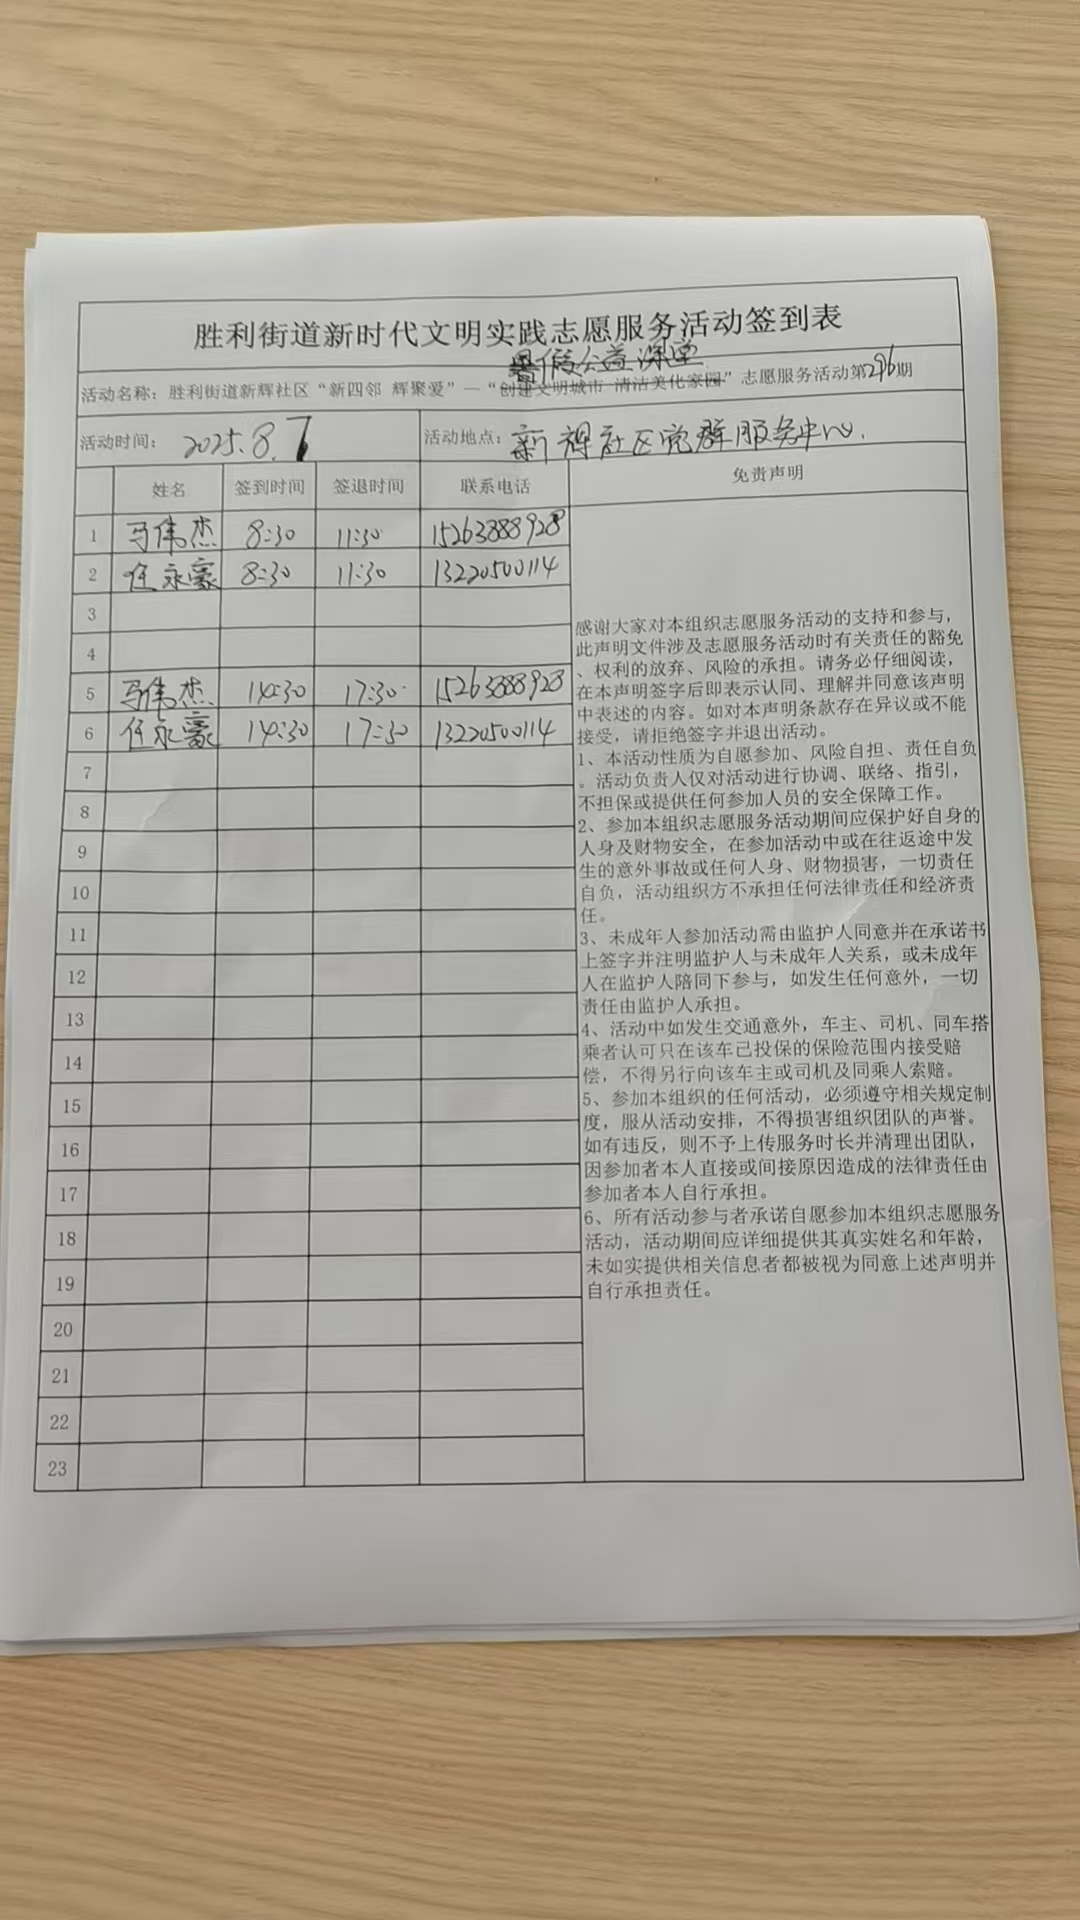 胜利街道新时代文明实践志愿服务活动签到表
暑假公益课堂
活动名称：胜利街道新辉社区“新四邻 辉聚爱”—“创建文明城市 清洁美化家园”志愿服务活动第296期
活动时间： 2025.8.7 活动地点：新辉社区党群服务中心.
姓名 签到时间 签退时间 联系电话 免责声明
1 马伟杰 8:30 11:30 15263888928
2 任永豪 8:30 11:30 13220500114
3
4
5 马伟杰 14:30 17:30 15263888928
6 任永豪 14:30 17:30 13220500114
7
8
9
10
11
12
13
14
15
16
17
18
19
20
21
22
23
感谢大家对本组织志愿服务活动的支持和参与，
此声明文件涉及志愿服务活动时有关责任的豁免
、权利的放弃、风险的承担。请务必仔细阅读，
在本声明签字后即表示认同、理解并同意该声明
中表述的内容。如对本声明条款存在异议或不能
接受，请拒绝签字并退出活动。
1、本活动性质为自愿参加、风险自担、责任自负
。活动负责人仅对活动进行协调、联络、指引，
不担保或提供任何参加人员的安全保障工作。
2、参加本组织志愿服务活动期间应保护好自身的
人身及财物安全，在参加活动中或在往返途中发
生的意外事故或任何人身、财物损害，一切责任
自负，活动组织方不承担任何法律责任和经济责
任。
3、未成年人参加活动需由监护人同意并在承诺书
上签字并注明监护人与未成年人关系，或未成年
人在监护人陪同下参与，如发生任何意外，一切
责任由监护人承担。
4、活动中如发生交通意外，车主、司机、同车搭
乘者认可只在该车已投保的保险范围内接受赔
偿，不得另行向该车主或司机及同乘人索赔。
5、参加本组织的任何活动，必须遵守相关规定制
度，服从活动安排，不得损害组织团队的声誉。
如有违反，则不予上传服务时长并清理出团队，
因参加者本人直接或间接原因造成的法律责任由
参加者本人自行承担。
6、所有活动参与者承诺自愿参加本组织志愿服务
活动，活动期间应详细提供其真实姓名和年龄，
未如实提供相关信息者都被视为同意上述声明并
自行承担责任。